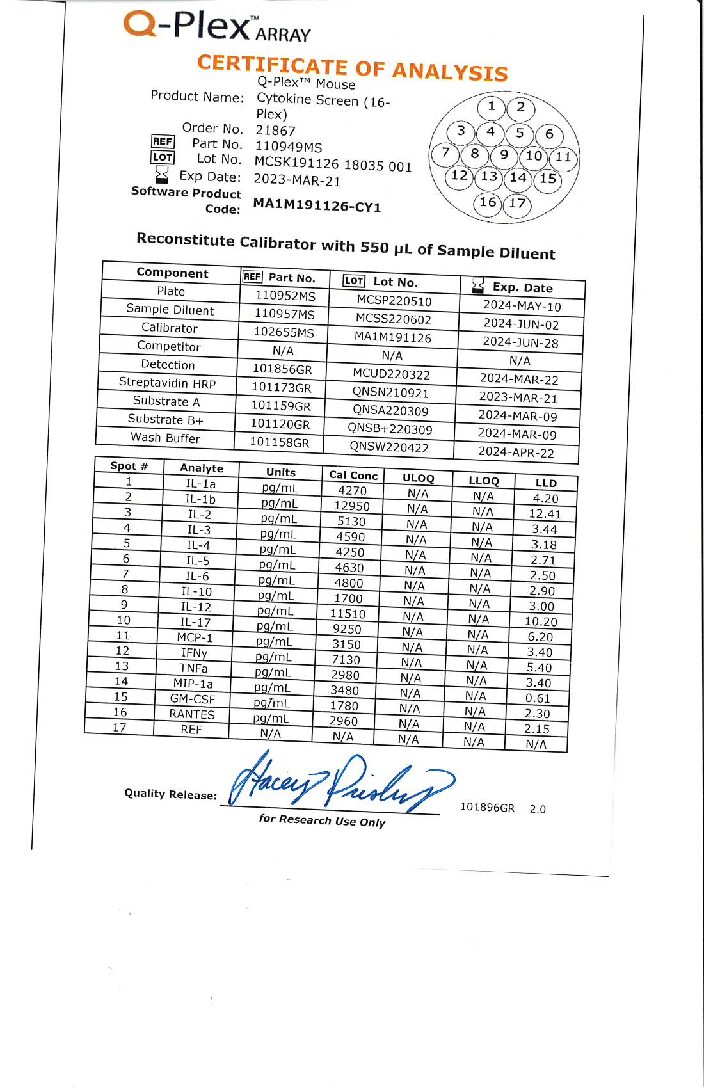 Q-Plex™ ARRAY
CERTIFICATE OF ANALYSIS
Product Name: Q-Plex™ Mouse
Cytokine Screen (16-
Plex)
Order No. 21867
REF Part No. 110949MS
LOT Lot No. MCSK191126 18035 001
Exp Date: 2023-MAR-21
Software Product
Code: MA1M191126-CY1
1 2
3 4 5 6
7 8 9 10 11
12 13 14 15
16 17
Reconstitute Calibrator with 550 µL of Sample Diluent
Component REF Part No. LOT Lot No. Exp. Date
Plate 110952MS MCSP220510 2024-MAY-10
Sample Diluent 110957MS MCSS220602 2024-JUN-02
Calibrator 102655MS MA1M191126 2024-JUN-28
Competitor N/A N/A N/A
Detection 101856GR MCUD220322 2024-MAR-22
Streptavidin HRP 101173GR QNSN210921 2023-MAR-21
Substrate A 101159GR QNSA220309 2024-MAR-09
Substrate B+ 101120GR QNSB+220309 2024-MAR-09
Wash Buffer 101158GR QNSW220422 2024-APR-22
Spot # Analyte Units Cal Conc ULOQ LLOQ LLD
1 IL-1a pg/mL 4270 N/A N/A 4.20
2 IL-1b pg/mL 12950 N/A N/A 12.41
3 IL-2 pg/mL 5130 N/A N/A 3.44
4 IL-3 pg/mL 4590 N/A N/A 3.18
5 IL-4 pg/mL 4250 N/A N/A 2.71
6 IL-5 pg/mL 4630 N/A N/A 2.50
7 IL-6 pg/mL 4800 N/A N/A 2.90
8 IL-10 pg/mL 1700 N/A N/A 3.00
9 IL-12 pg/mL 11510 N/A N/A 10.20
10 IL-17 pg/mL 9250 N/A N/A 6.20
11 MCP-1 pg/mL 3150 N/A N/A 3.40
12 IFNγ pg/mL 7130 N/A N/A 5.40
13 TNFa pg/mL 2980 N/A N/A 3.40
14 MIP-1a pg/mL 3480 N/A N/A 0.61
15 GM-CSF pg/mL 1780 N/A N/A 2.30
16 RANTES pg/mL 2960 N/A N/A 2.15
17 REF N/A N/A N/A N/A N/A
Quality Release: Stacey 101896GR 2.0
for Research Use Only